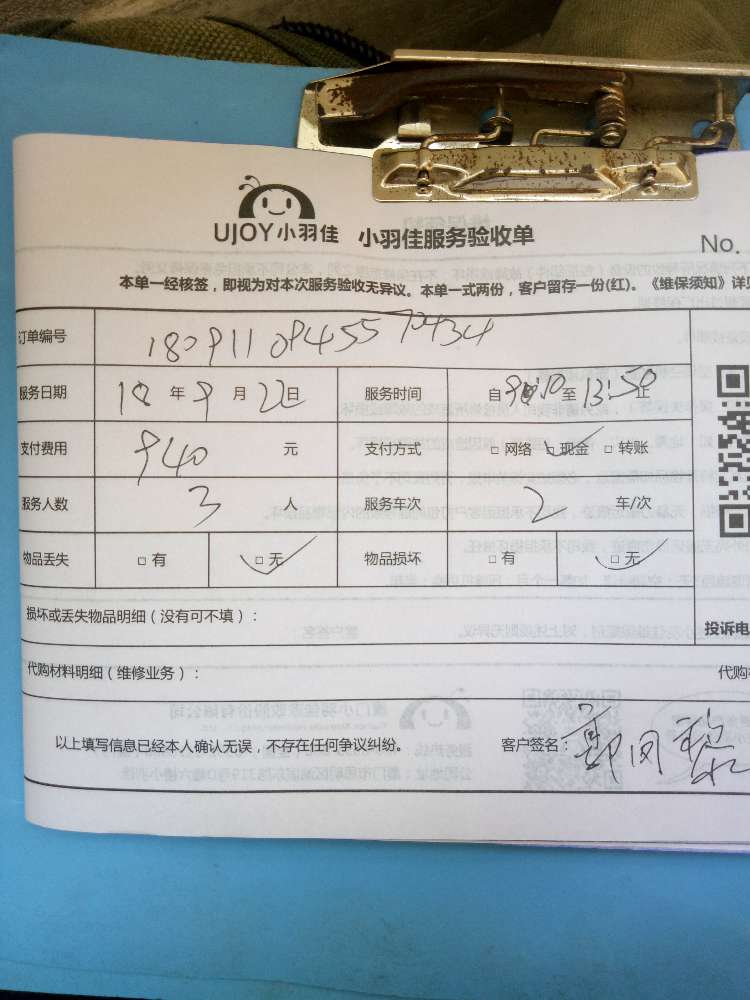 UJOY小羽佳 小羽佳服务验收单
No.
本单一经核签，即视为对本次服务验收无异议。本单一式两份，客户留存一份(红)。《维保须知》详见
订单编号 180911094557
服务日期 18年9月22日 服务时间 自9:10至13:50止
支付费用 940 元 支付方式 □ 网络 □ 现金 □ 转账
服务人数 3 人 服务车次 2 车/次
物品丢失 □ 有 □ 无 物品损坏 □ 有 □ 无
损坏或丢失物品明细（没有可不填）：
投诉电
代购材料明细（维修业务）： 代购
以上填写信息已经本人确认无误，不存在任何争议纠纷。 客户签名：